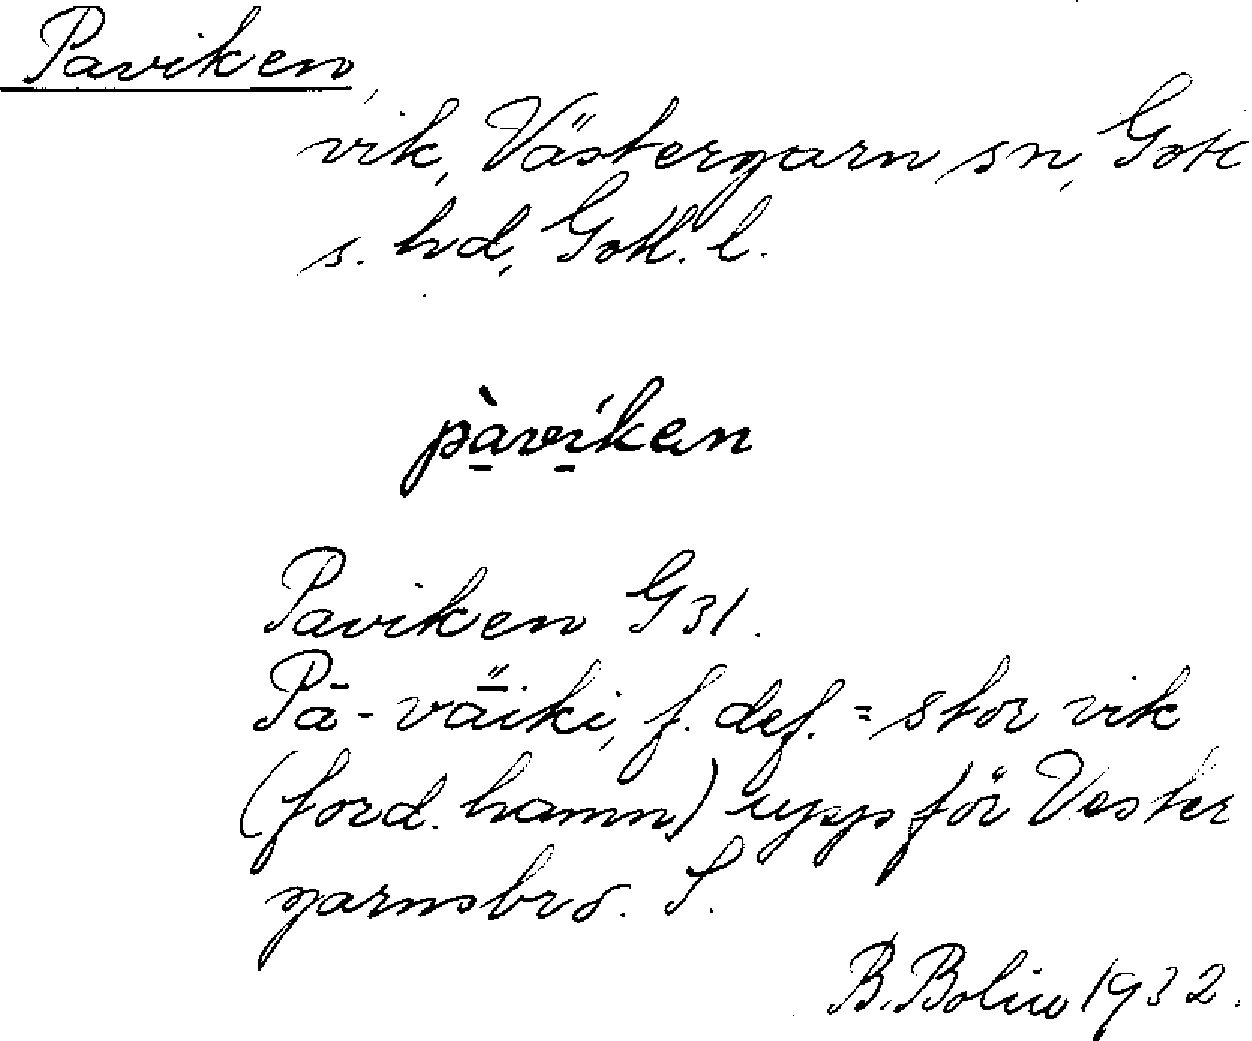 Paviken,
vik, Västergarn sn, Gotl
s. hd, Gotl. l.
pà̱ví̱ken
Paviken G 31.
Pā-vǟiki, f. def. = stor vik
(ford. hamn) upp för Vester
garnsbro. S.
B. Bolin 1932.